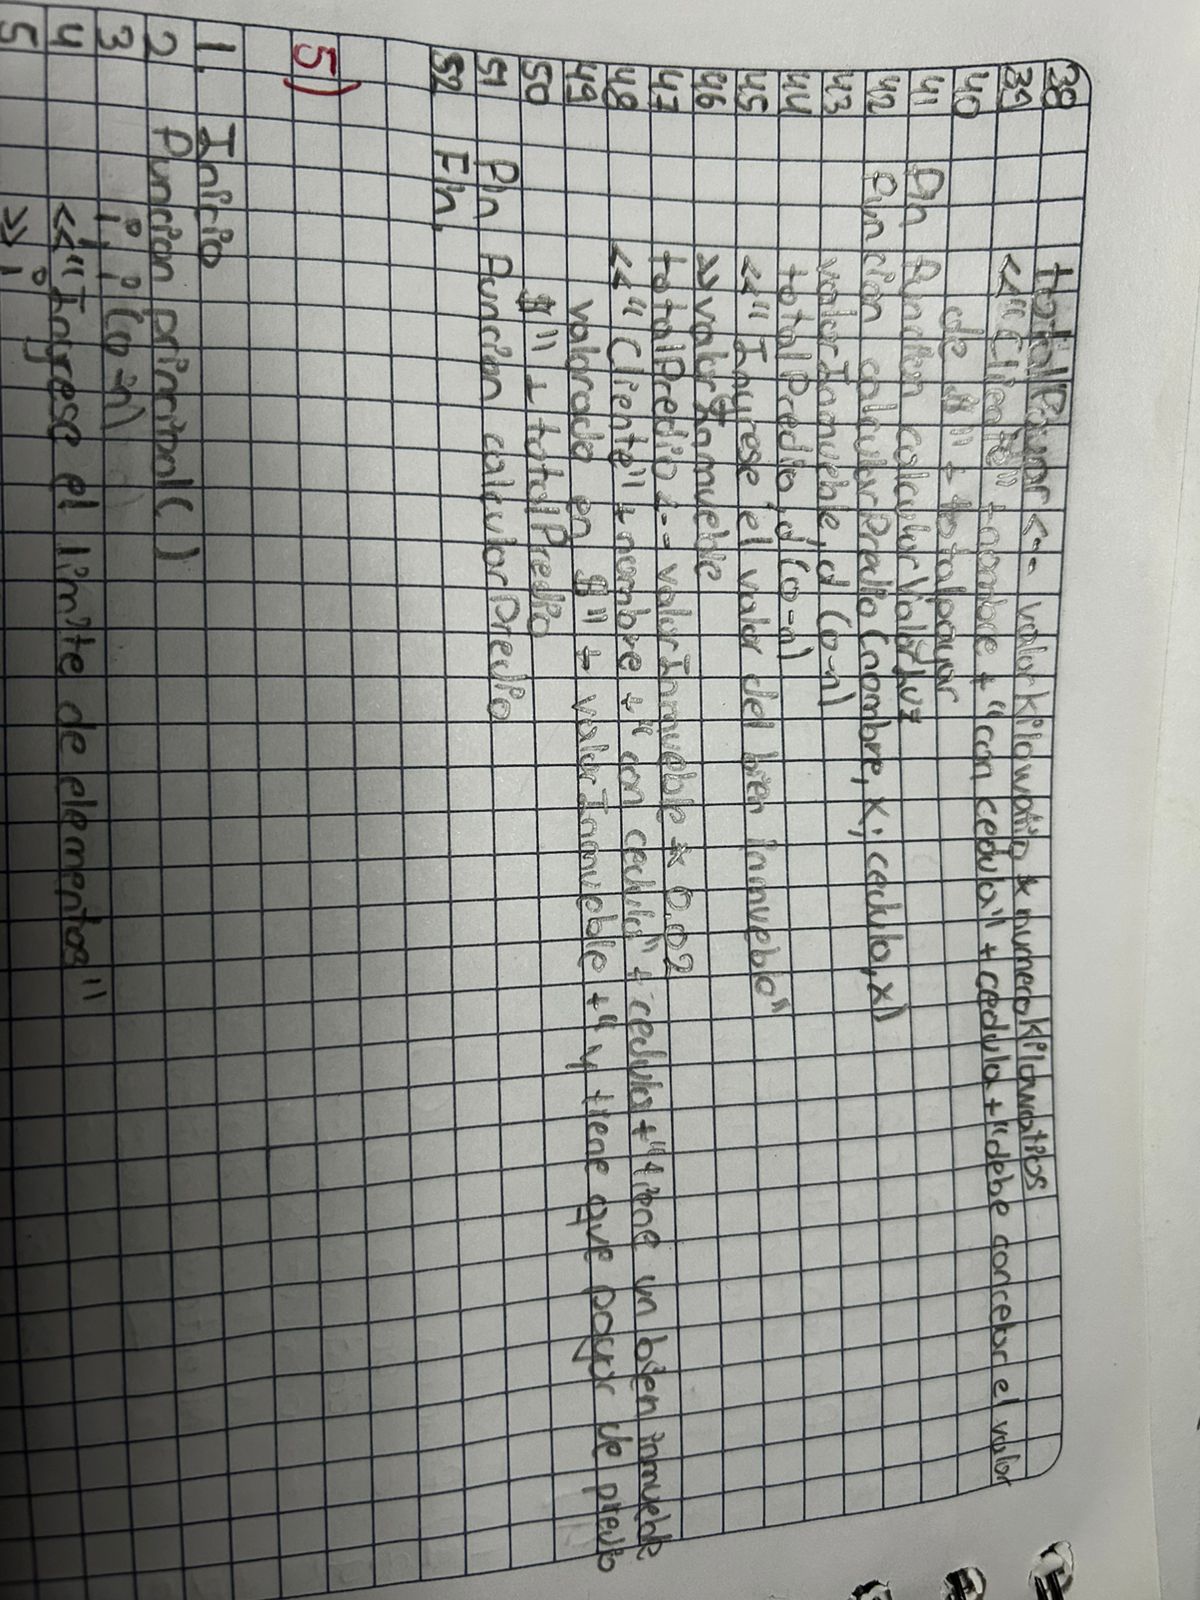 38 totalPagar <-- valorKilowatio * numeroKilowatios
39 <<"Cliente" + nombre + "con cedula" + cedula + "debe cancelar el valor
40 de $" + totalpagar
41 Fin Funcion calcularValorLuz
42 Funcion calcularPredio (nombre, x; cedula, x)
43 valorInmueble, d (0-n)
44 totalPredio, d (0-n)
45 <<"Ingrese el valor del bien inmueble"
46 >> valorInmueble
47 totalPredio <-- valorInmueble * 0.02
48 <<"Cliente" + nombre + "con cedula" + cedula + "tiene un bien inmueble
49 valorado en $" + valorInmueble + "y tiene que pagar de predio
50 $" + totalPredio
51 Fin Funcion calcularPredio
52 Fin.
5)
1. Inicio
2 Funcion principal()
3 i; i (0-n)
4 <<"Ingrese el limite de elementos"
5 >> i